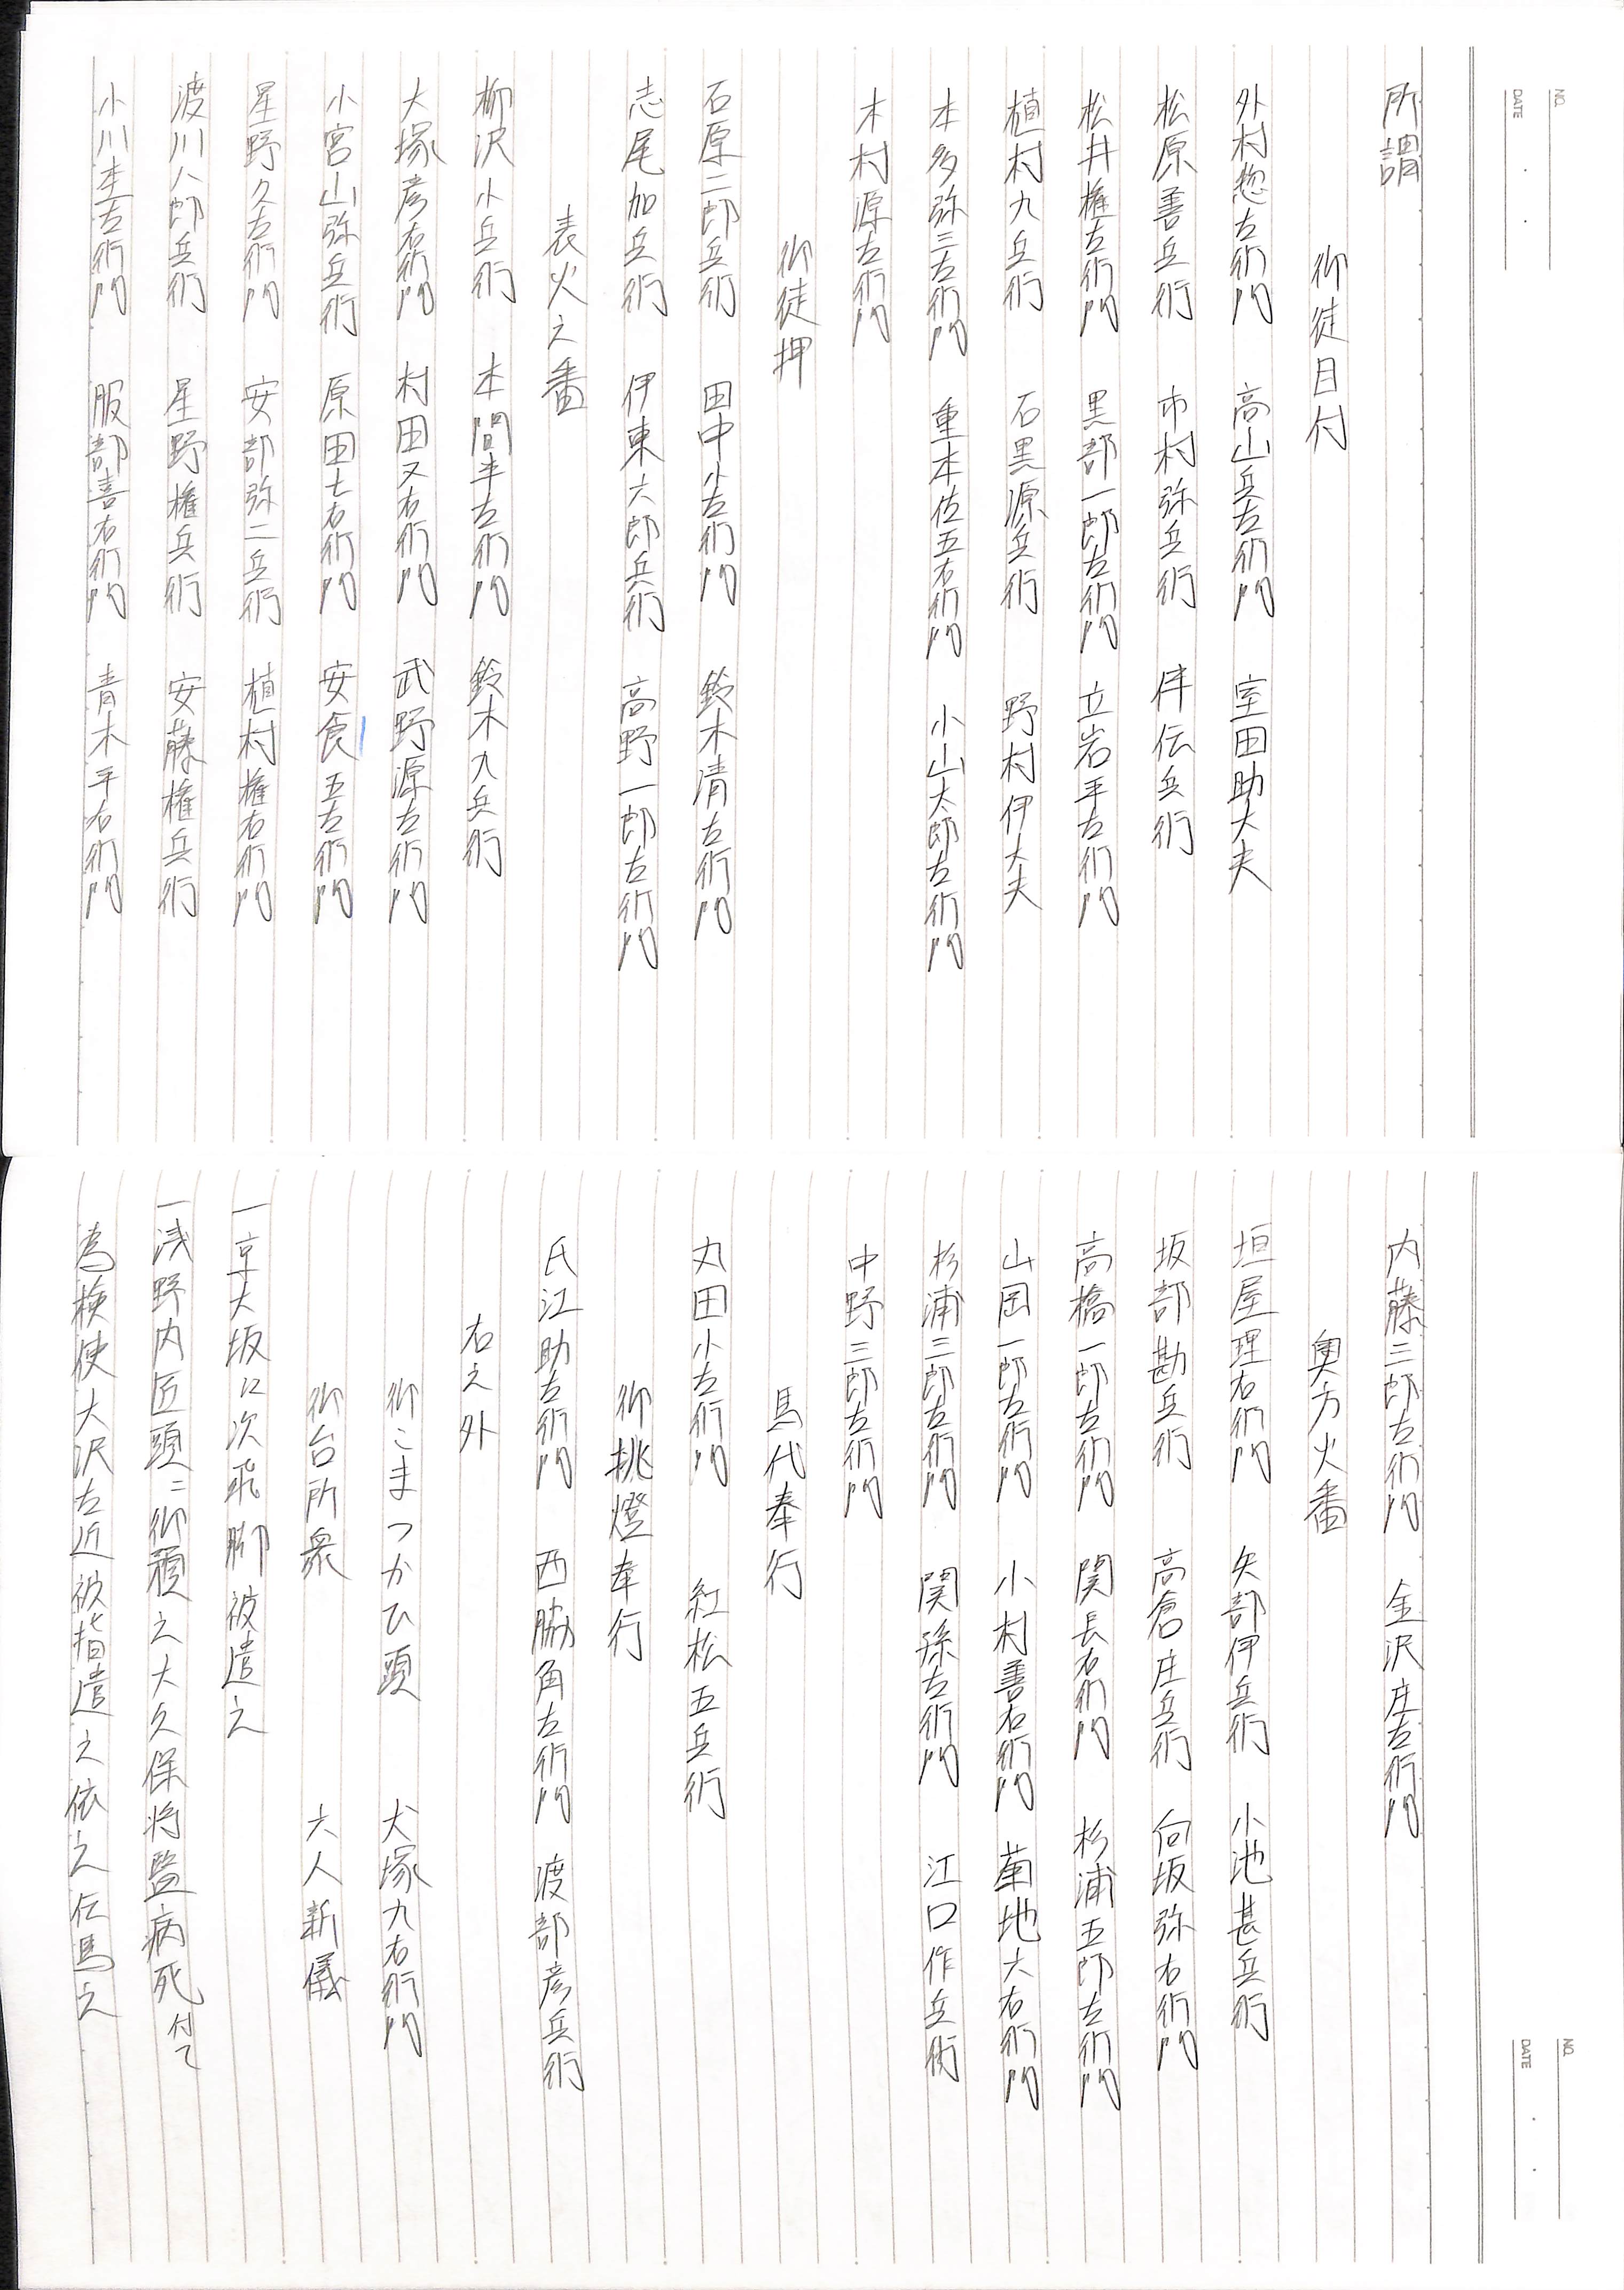 NO.
DATE
所謂
御徒目付
外村惣左衛門 高山兵左衛門 室田助大夫
松原善兵衛 市村弥兵衛 伴伝兵衛
松井権左衛門 黒部一郎左衛門 立岩平左衛門
植村九兵衛 石黒源兵衛 野村伊大夫
本多弥三左衛門 重本佐五右衛門 小山太郎左衛門
木村源左衛門
御徒押
石原二郎兵衛 田中小左衛門 鈴木清左衛門
志尾加兵衛 伊東六郎兵衛 高野一郎左衛門
表火之番
柳沢小兵衛 本間半左衛門 鈴木九兵衛
大塚彦右衛門 村田又右衛門 武野源左衛門
小宮山弥兵衛 原田七右衛門 安食五左衛門
星野久左衛門 安部弥二兵衛 植村権右衛門
渡川八郎兵衛 星野権兵衛 安藤権兵衛
小川杢左衛門 服部喜右衛門 青木平右衛門
NO.
DATE
内藤三郎左衛門 金沢庄左衛門
奥方火番
垣屋理右衛門 矢部伊兵衛 小池甚兵衛
坂部勘兵衛 高倉庄兵衛 向坂弥右衛門
高橋一郎左衛門 関長右衛門 杉浦五郎左衛門
山岡一郎左衛門 小村善右衛門 菊地六右衛門
杉浦三郎左衛門 関孫左衛門 江口作兵衛
中野三郎左衛門
馬代奉行
丸田小左衛門 紅松五兵衛
御挑燈奉行
氏江助左衛門 西脇角左衛門 渡部彦兵衛
右之外
御こまつかひ頭 犬塚九右衛門
御台所衆 六人新儀
一京大坂江次飛脚被遣之
一浅野内匠頭ニ御預之大久保将監病死付て
為検使大沢左近被指遣之依之伝馬之